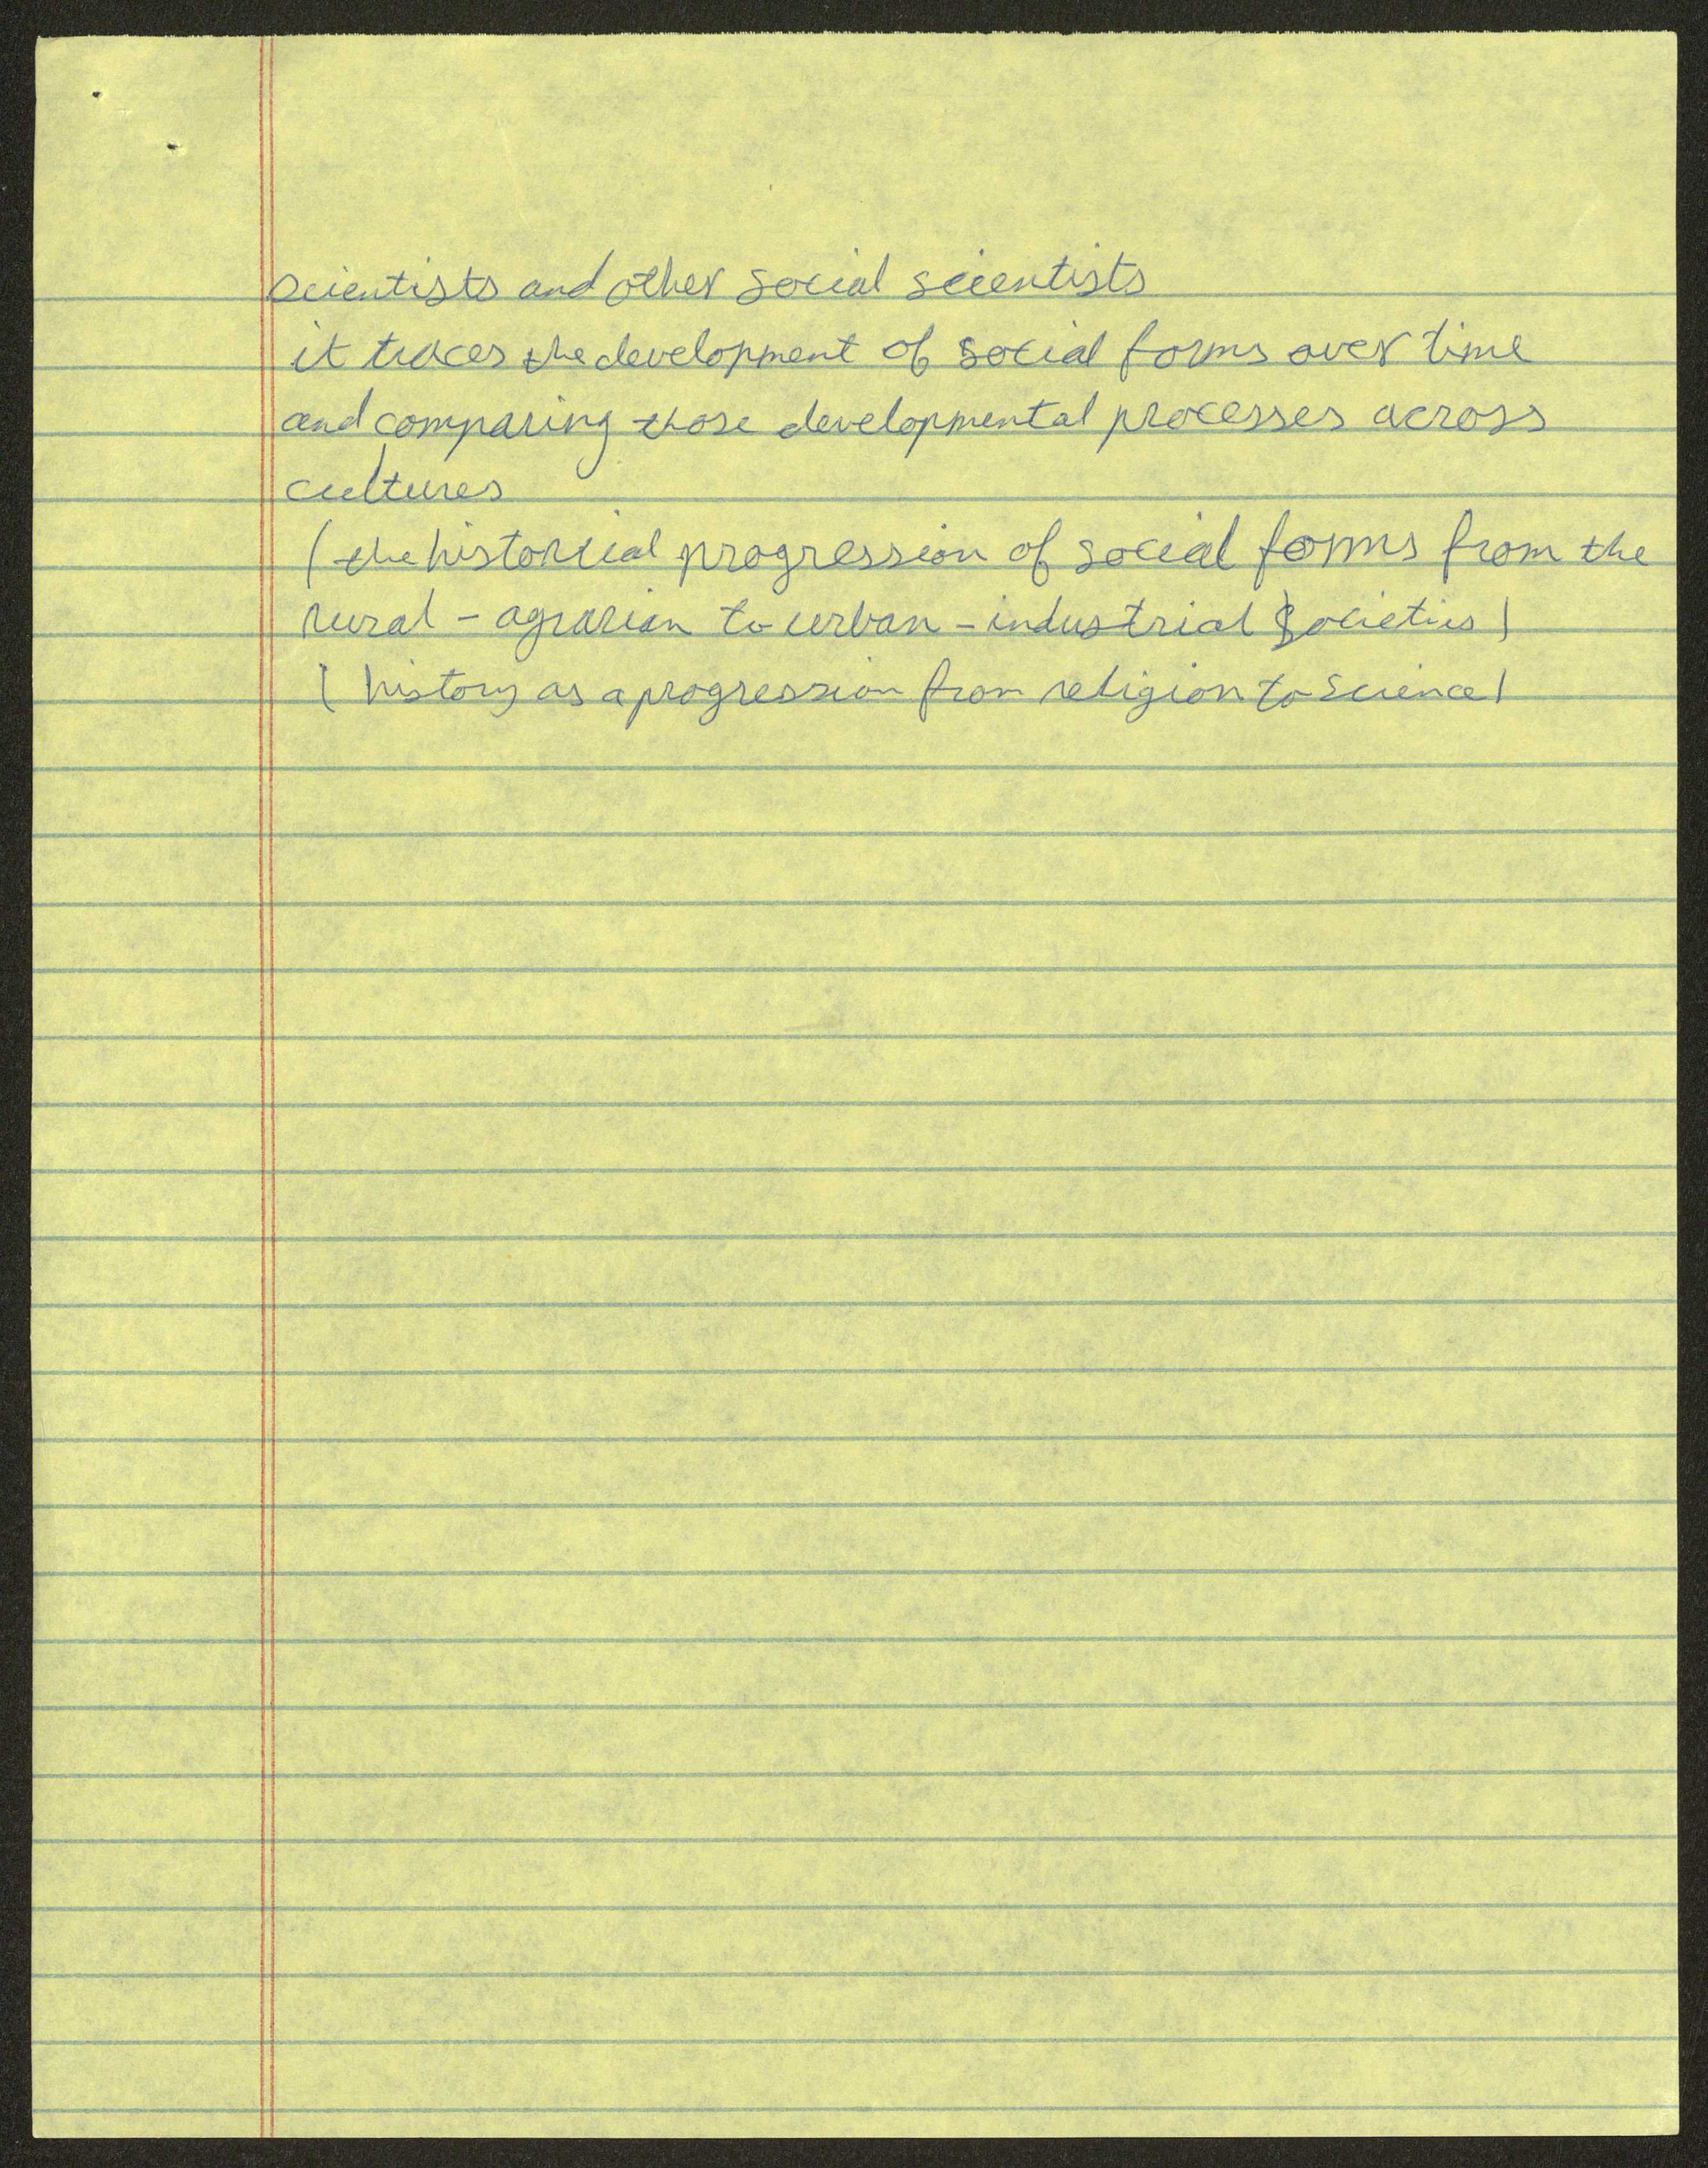 scientists and other social scientists
it traces the development of social forms over time
and comparing those developmental processes across
cultures
(the historcial progression of social forms from the
rural - agrarian to urban - industrial societies)
(history as a progression from religion to science)